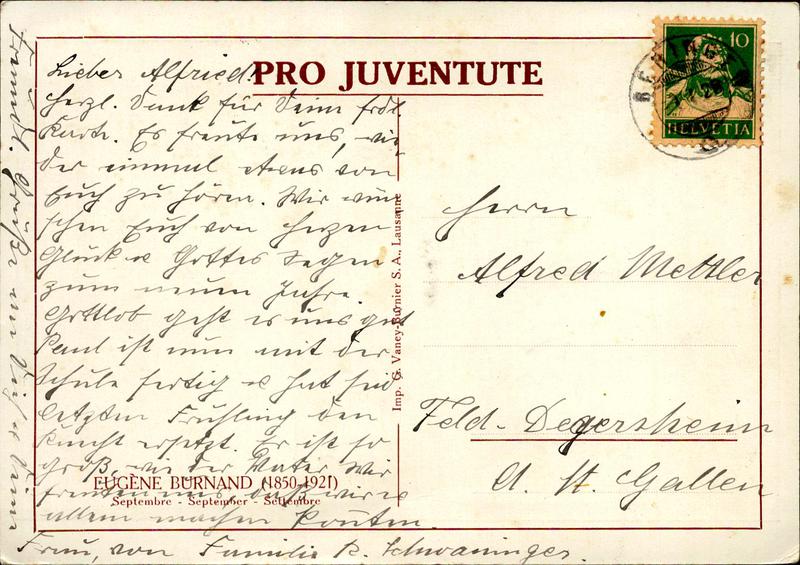 PRO JUVENTUTE
Lieber Alfried!
Herzl. Dank für Deine frdl.
Karte. Es freute uns, wie
der einmal etwas von
Euch zu hören. Wir wün
schen Euch von Herzen
Glück & Gottes Segen
zum neuen Jahre.
Gottlob geht es uns gut
Paul ist nun mit der
Schule fertig & hat
letzten Frühling den
ersetzt. Er ist so
groß, wie der Vater. Wir
freuten uns, daß wir es
allem machen konnten.
von Familie R. Schwaninger.
Freundl. Grüße an
EUGÈNE BURNAND (1850-1921)
Septembre - September - Settembre
Imp. G. Vaney-Burnier S. A., Lausanne
10
HELVETIA
Herrn
Alfred Mettler
Feld-Degersheim
Ct. St. Gallen